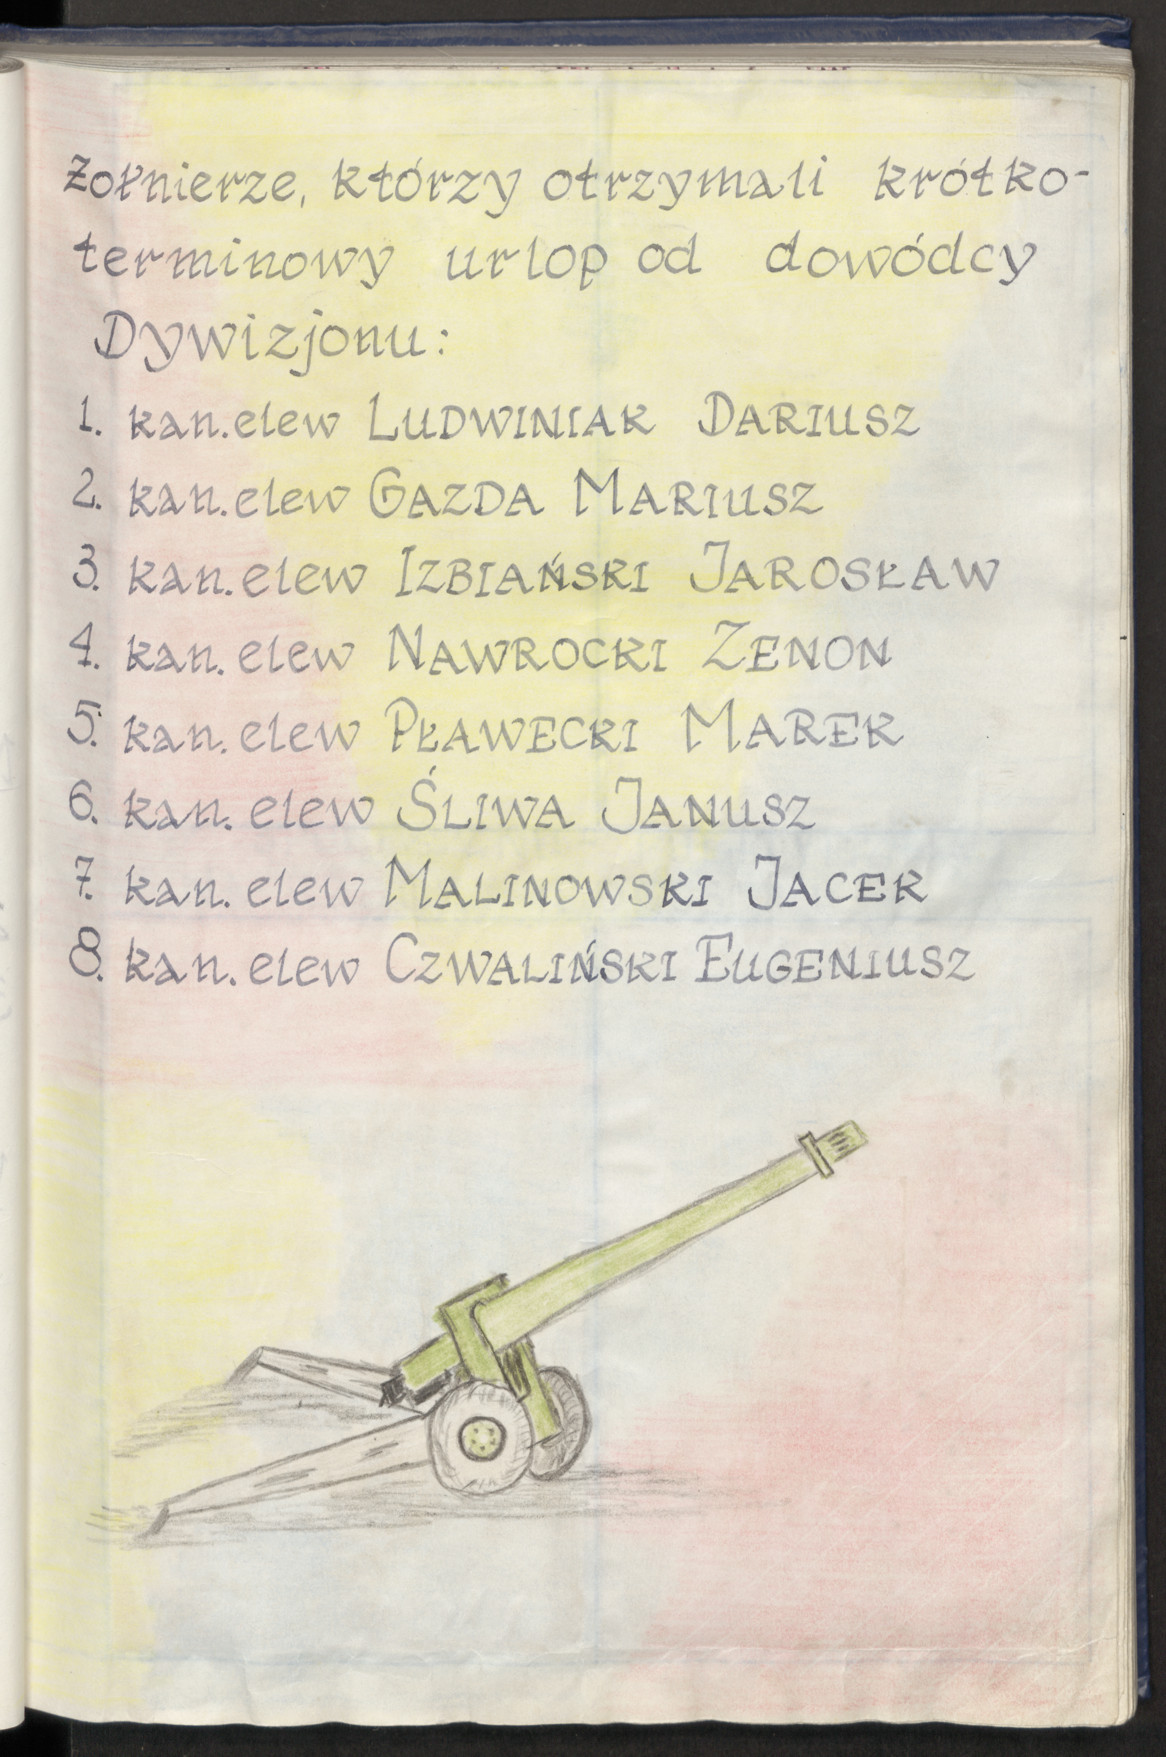 Żołnierze, którzy otrzymali krótko-
terminowy urlop od dowódcy
Dywizjonu:
1. kan.elew LUDWINIAK DARIUSZ
2. kan.elew GAZDA MARIUSZ
3. kan.elew IZBIAŃSKI JAROSŁAW
4. kan. elew NAWROCKI ZENON
5. kan. elew PŁAWECKI MAREK
6. kan. elew ŚLIWA JANUSZ
7. kan. elew MALINOWSKI JACEK
8. kan. elew CZWALIŃSKI EUGENIUSZ